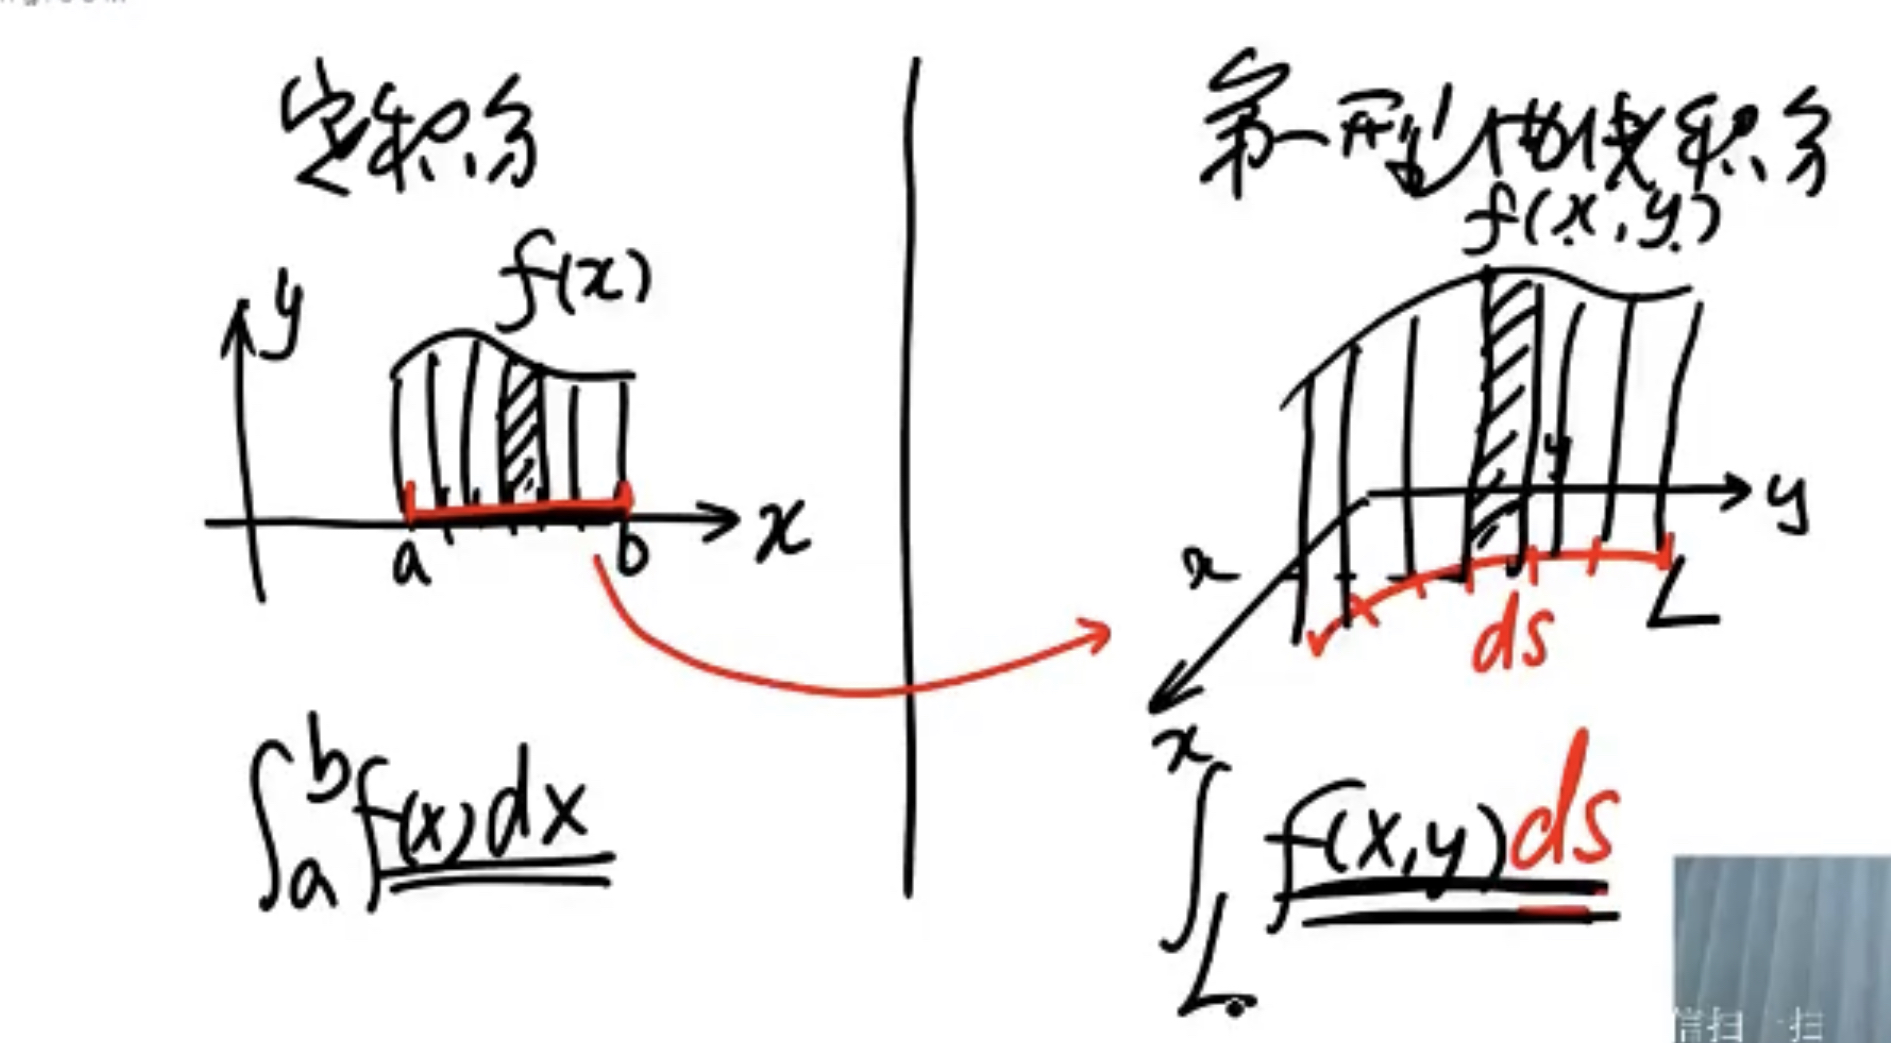 定积分
f(x)
y
a
b
x
∫_a^b f(x)dx
第一型曲线积分
f(x,y)
y
y
x
ds
L
x
∫_L f(x,y)ds
信扫一扫